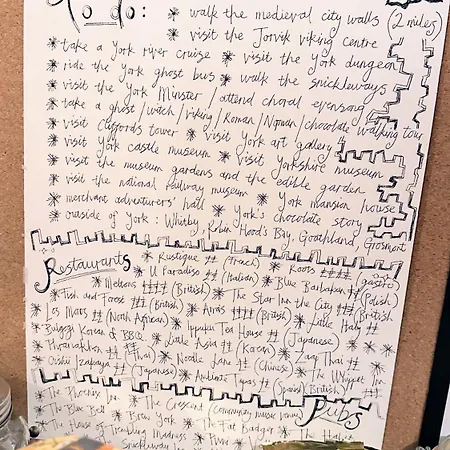 To do:
* walk the medieval city walls (2 miles)
* visit the Jorvik viking centre
* take a York river cruise * visit the York dungeon
* ride the York ghost bus * walk the snickleways
* visit the York Minster / attend choral evensong
* take a ghost/witch/viking/Roman/Norman/chocolate walking tour
* visit Cliffords tower * visit York art gallery
* visit York castle museum * visit Yorkshire museum
* visit the museum gardens and the edible garden
* visit the national railway museum * York mansion house
* merchant adventurers' hall * York's chocolate story
* outside of York: Whitby, Robin Hood's Bay, Goathland, Grosmont
Restaurants * Rustique ££ (French)
* Il Paradiso ££ (Italian) * Roots ££££ (gastro)
* Melton's £££ (British) * Blue Barbakan ££ (Polish)
* Fish and Forest £££ (British) * The Star Inn the City £££ (British)
* Los Moros ££ (North African) * Arras ££££ (British) * Little Italy ££
* Bulgogi Korean & BBQ * Ippuku Tea House ££ (Japanese)
* Phranakhon ££ (Thai) * Little Asia ££ (Korean) * Zaap Thai ££
* Oishii Izakaya ££ (Japanese) * Noodle Lane ££ (Chinese) * The Whippet Inn
* Ambiente Tapas ££ (Spanish) (British) ££
Pubs
* The Phoenix Inn * The Crescent (community music venue)
* The Blue Bell * Brew York * The Fat Badger
* The House of Trembling Madness * The